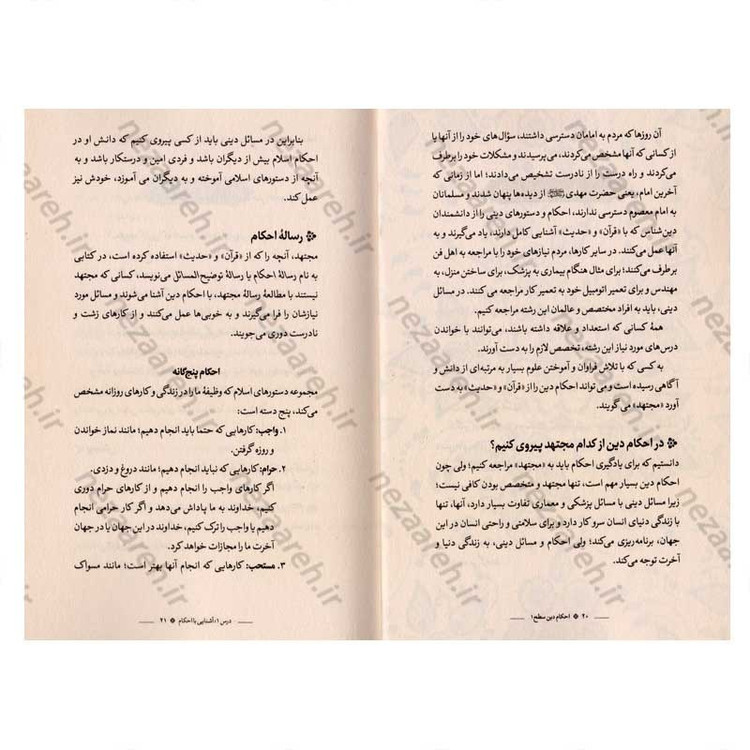 آن روزها که مردم به امامان دسترسی داشتند، سؤال‌های خود را از آنها یا
از کسانی که آنها مشخص می‌کردند، می‌پرسیدند و مشکلات خود را برطرف
می‌کردند و راه درست را از نادرست تشخیص می‌دادند؛ اما از زمانی که
آخرین امام، یعنی حضرت مهدی از دیده‌ها پنهان شدند و مسلمانان
به امام معصوم دسترسی ندارند، احکام و دستورهای دینی را از دانشمندان
دین‌شناس که با «قرآن» و «حدیث» آشنایی کامل دارند، یاد می‌گیرند و به
آنها عمل می‌کنند. در سایر کارها، مردم نیازهای خود را با مراجعه به اهل فن
برطرف می‌کنند؛ برای مثال هنگام بیماری به پزشک، برای ساختن منزل، به
مهندس و برای تعمیر اتومبیل خود به تعمیر کار مراجعه می کنند. در مسائل
دینی، باید به افراد متخصص و عالمان این رشته مراجعه کنیم.
همۀ کسانی که استعداد و علاقه داشته باشند، می‌توانند با خواندن
درس‌های مورد نیاز این رشته، تخصص لازم را به دست آورند.
به کسی که با تلاش فراوان و آموختن علوم بسیار به مرتبه‌ای از دانش و
آگاهی رسیده است و می‌تواند احکام دین را از «قرآن» و «حدیث» به دست
آورد «مجتهد» می گویند.
در احکام دین از کدام مجتهد پیروی کنیم؟
دانستیم که برای یادگیری احکام باید به «مجتهد» مراجعه کنیم؛ ولی چون
احکام دین بسیار مهم است، تنها مجتهد و متخصص بودن کافی نیست؛
زیرا مسائل دینی با مسائل پزشکی و معماری تفاوت بسیار دارد، آنها، تنها
با زندگی دنیای انسان سرو کار دارد و برای سلامتی و راحتی انسان در این
جهان، برنامه‌ریزی می‌کند؛ ولی احکام و مسائل دینی، به زندگی دنیا و
آخرت توجه می‌کند.
۲۰ احکام دین سطح ۱
بنابراین در مسائل دینی باید از کسی پیروی کنیم که دانش او در
احکام اسلام بیش از دیگران باشد و فردی امین و درستکار باشد و به
آنچه از دستورهای اسلامی آموخته و به دیگران می آموزد، خودش نیز
عمل کند.
رسالۀ احکام
مجتهد، آنچه را که از «قرآن» و «حدیث» استفاده کرده است، در کتابی
به نام رسالۀ احکام یا رسالۀ توضیح المسائل می‌نویسد، کسانی که مجتهد
نیستند با مطالعۀ رسالۀ مجتهد، با احکام دین آشنا می شوند و مسائل مورد
نیازشان را فرا می‌گیرند و به خوبی‌ها عمل می‌کنند و از کارهای زشت و
نادرست دوری می‌جویند.
احکام پنج‌گانه
مجموعه دستورهای اسلام که وظیفۀ ما را در زندگی و کارهای روزانه مشخص
می‌کند، پنج دسته است:
۱. واجب: کارهایی که حتما باید انجام دهیم؛ مانند نماز خواندن
و روزه گرفتن.
۲. حرام: کارهایی که نباید انجام دهیم؛ مانند دروغ و دزدی.
اگر کارهای واجب را انجام دهیم و از کارهای حرام دوری
کنیم، خداوند به ما پاداش می‌دهد و اگر کار حرامی انجام
دهیم یا واجب را ترک کنیم، خداوند در این جهان یا در جهان
آخرت ما را مجازات خواهد کرد.
۳. مستحب: کارهایی که انجام آنها بهتر است؛ مانند مسواک
درس ۱: آشنایی با احکام ۲۱
nezaareh.ir